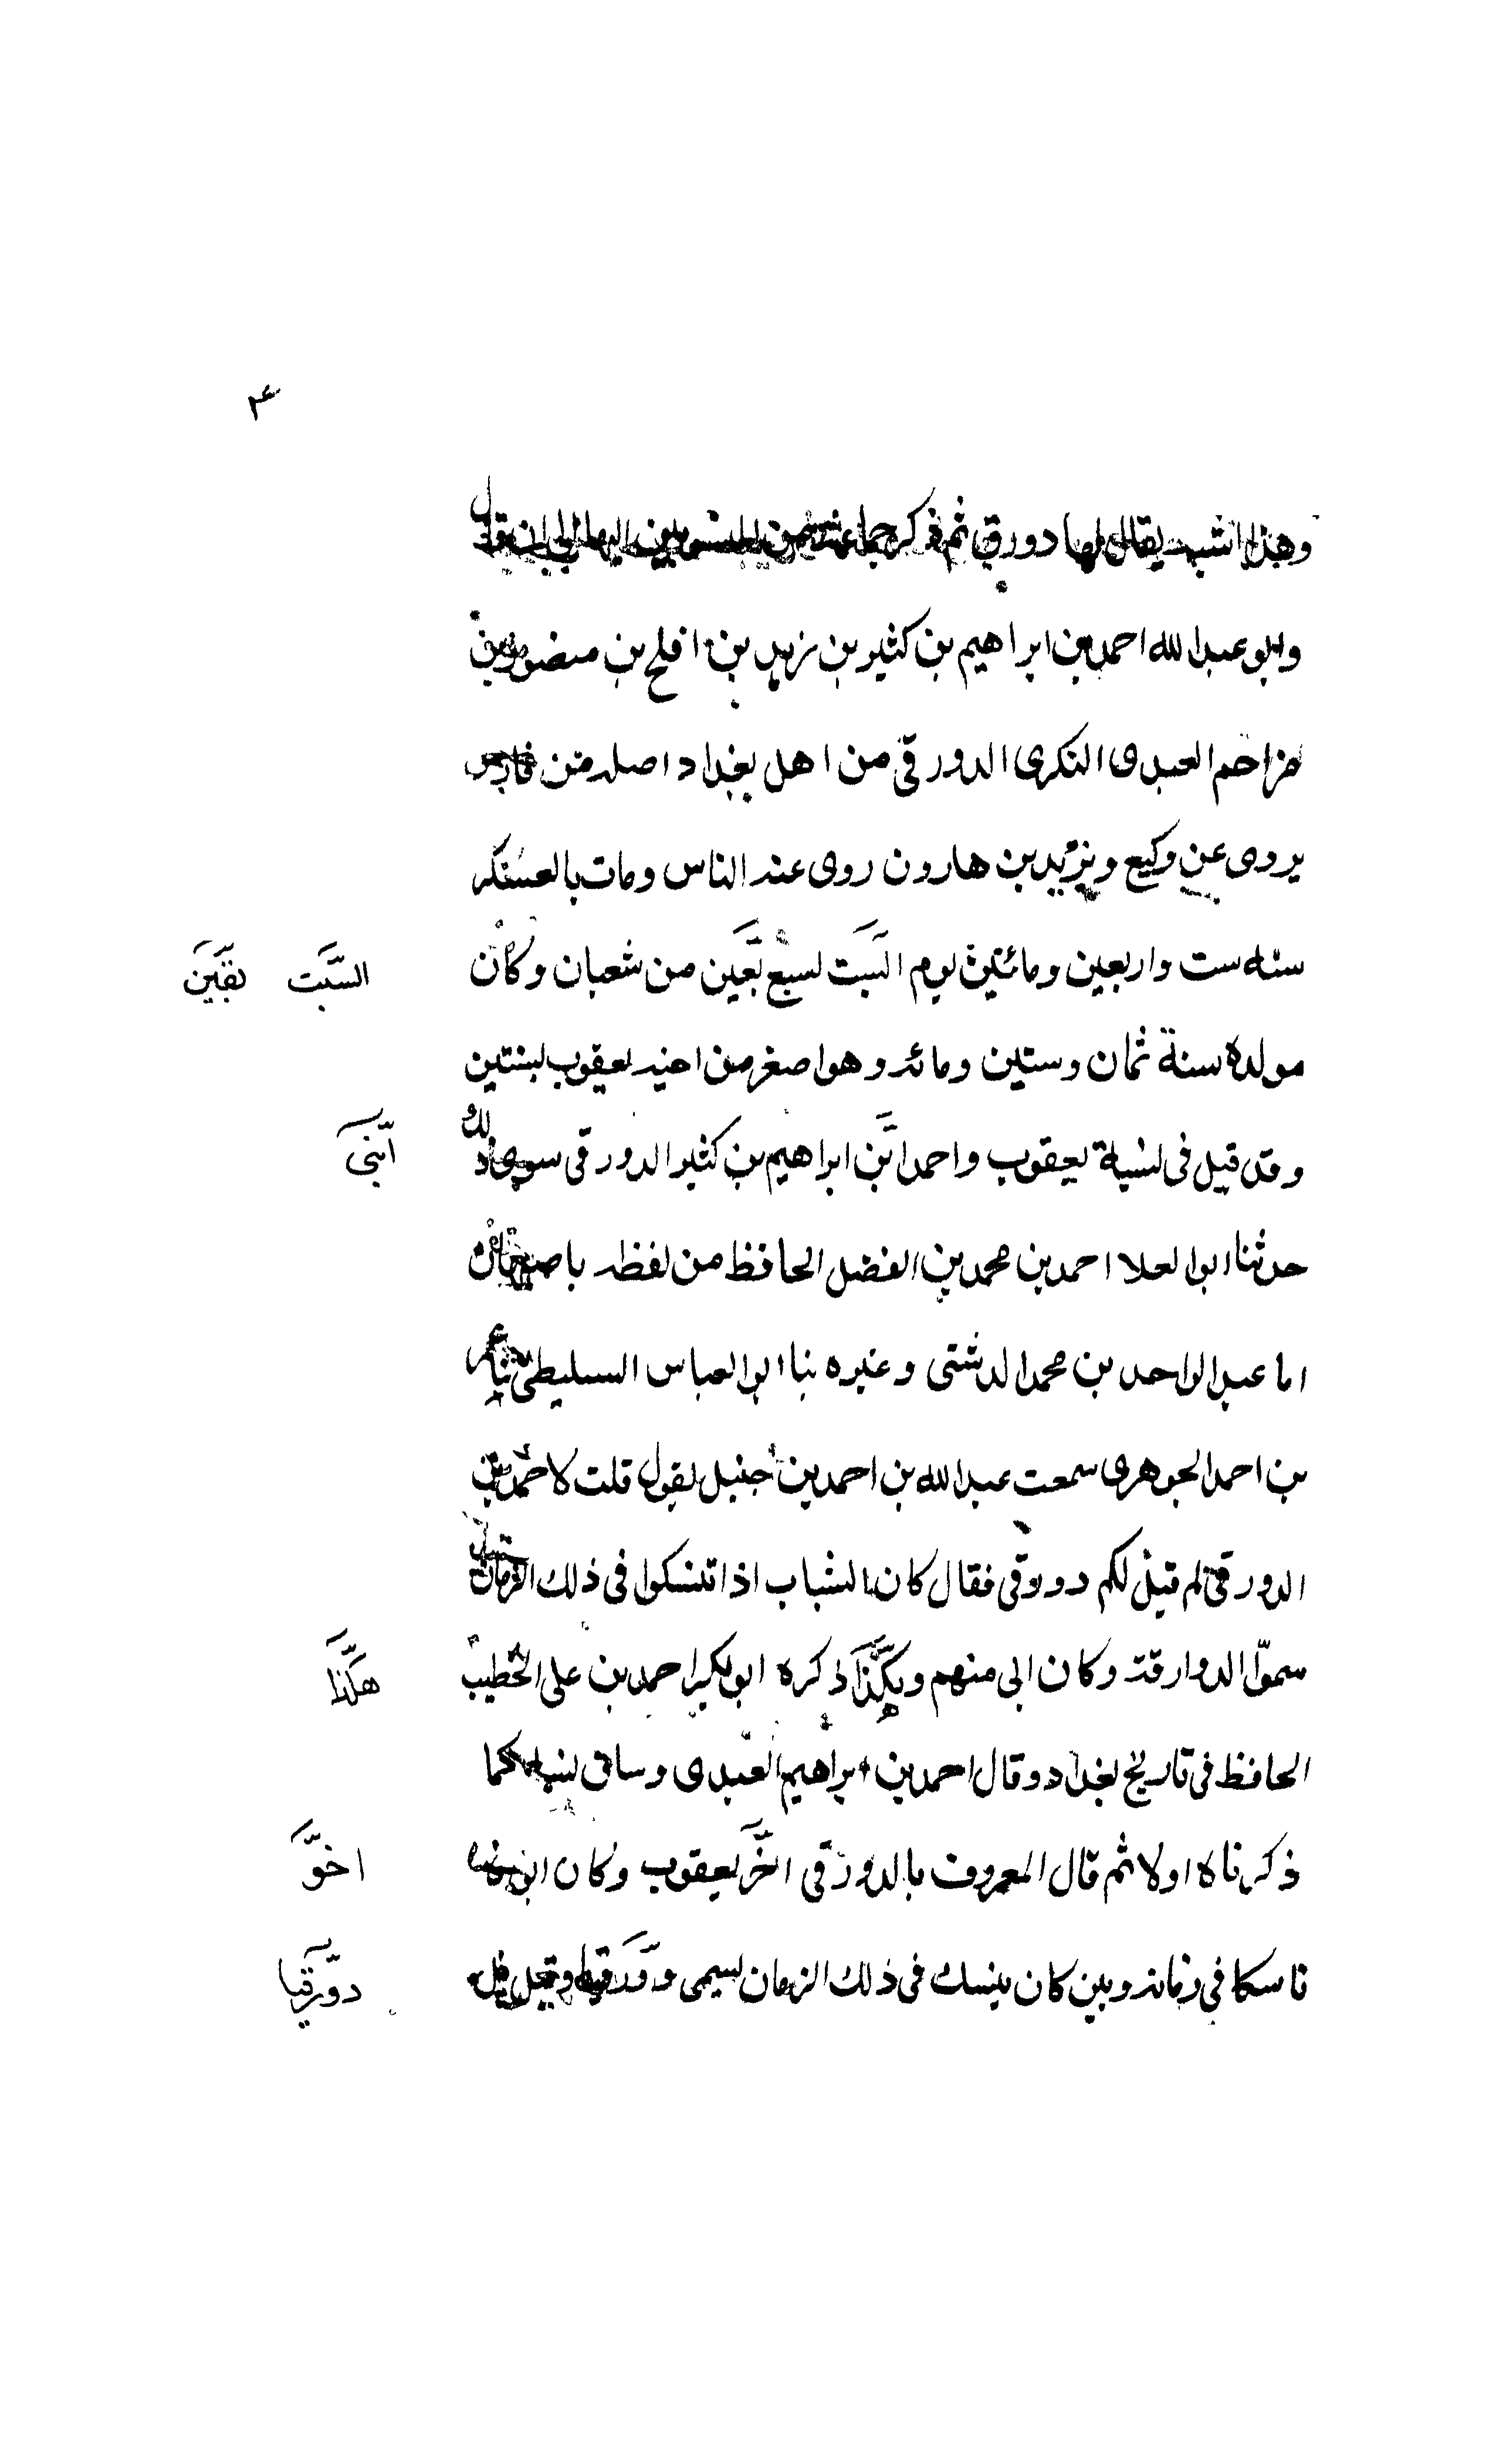 ٣
وهذا اشبه يقال لها دورق ثم ذكر جماعة من المنسوبين اليها الى ان قال
وابو عبد الله احمد بن ابراهيم بن كثير بن زيد بن افلح بن منصور بن
مزاحم العبدى النكرى الدورقى من اهل بغداد اصله من فارس
يروى عن وكيع ويزيد بن هارون روى عنه الناس ومات بالعسكر
سنه ست واربعين ومائتين يوم السبت لسبع بقين من شعبان وكان
السبت بقين
مولده سنة ثمان وستين ومائه وهو اصغر من اخيه يعقوب بسنتين
وقد قيل فى نسبة يعقوب واحمد ابن ابراهيم بن كثير الدورقى سوى ذلك
ابنى
حدثنا ابو العلا احمد بن محمد بن الفضل الحافظ من لفظه باصبهان
اما عبد الواحد بن محمد الدشتى وغيره نبا ابو العباس السليطى نبا عمر
بن احمد الجوهرى سمعت عبد الله بن احمد بن حنبل يقول قلت لاحمد بن
الدورقى لم قيل لكم دورقى فقال كان الشباب اذا تنسكوا فى ذلك الزمان
سموا الدوارقة وكان ابى منهم وهكذا ذكره ابو بكر احمد بن على الخطيب
هكذا
الحافظ فى تاريخ بغداد وقال احمد بن ابراهيم العبدى وساق نسبه كما
ذكرناه اولا ثم قال المعروف بالدورقى اخو يعقوب وكان ابوه
اخو
ناسكا فى زمانه ومن كان ينسك فى ذلك الزمان يسمى دورقيا وقيل بل
دورقيا